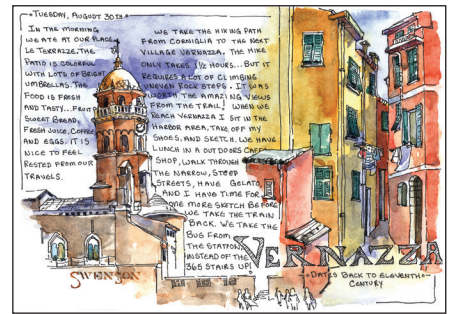 TUESDAY, AUGUST 30TH
IN THE MORNING
WE ATE AT OUR PLACE
LE TERRAZZE. THE
PATIO IS COLORFUL
WITH LOTS OF BRIGHT
UMBRELLAS. THE
FOOD IS FRESH
AND TASTY...FRUIT,
SWEET BREAD,
FRESH JUICE, COFFEE
AND EGGS. IT IS
NICE TO FEEL
RESTED FROM OUR
TRAVELS.
WE TAKE THE HIKING PATH
FROM CORNIGLIA TO THE NEXT
VILLAGE VERNAZZA. THE HIKE
ONLY TAKES 1½ HOURS...BUT IT
REQUIRES A LOT OF CLIMBING
UNEVEN ROCK STEPS. IT WAS
WORTH THE AMAZING VIEWS
FROM THE TRAIL! WHEN WE
REACH VERNAZZA I SIT IN THE
HARBOR AREA, TAKE OFF MY
SHOES, AND SKETCH. WE HAVE
LUNCH IN A OUTDOORS CAFFE
SHOP, WALK THROUGH
THE NARROW, STEEP
STREETS, HAVE GELATO,
AND I HAVE TIME FOR
ONE MORE SKETCH BEFORE
WE TAKE THE TRAIN
BACK. WE TAKE THE
BUS FROM
THE STATION
INSTEAD OF THE
365 STAIRS UP!
SWENSON
VERNAZZA
DATES BACK TO ELEVENTH
CENTURY